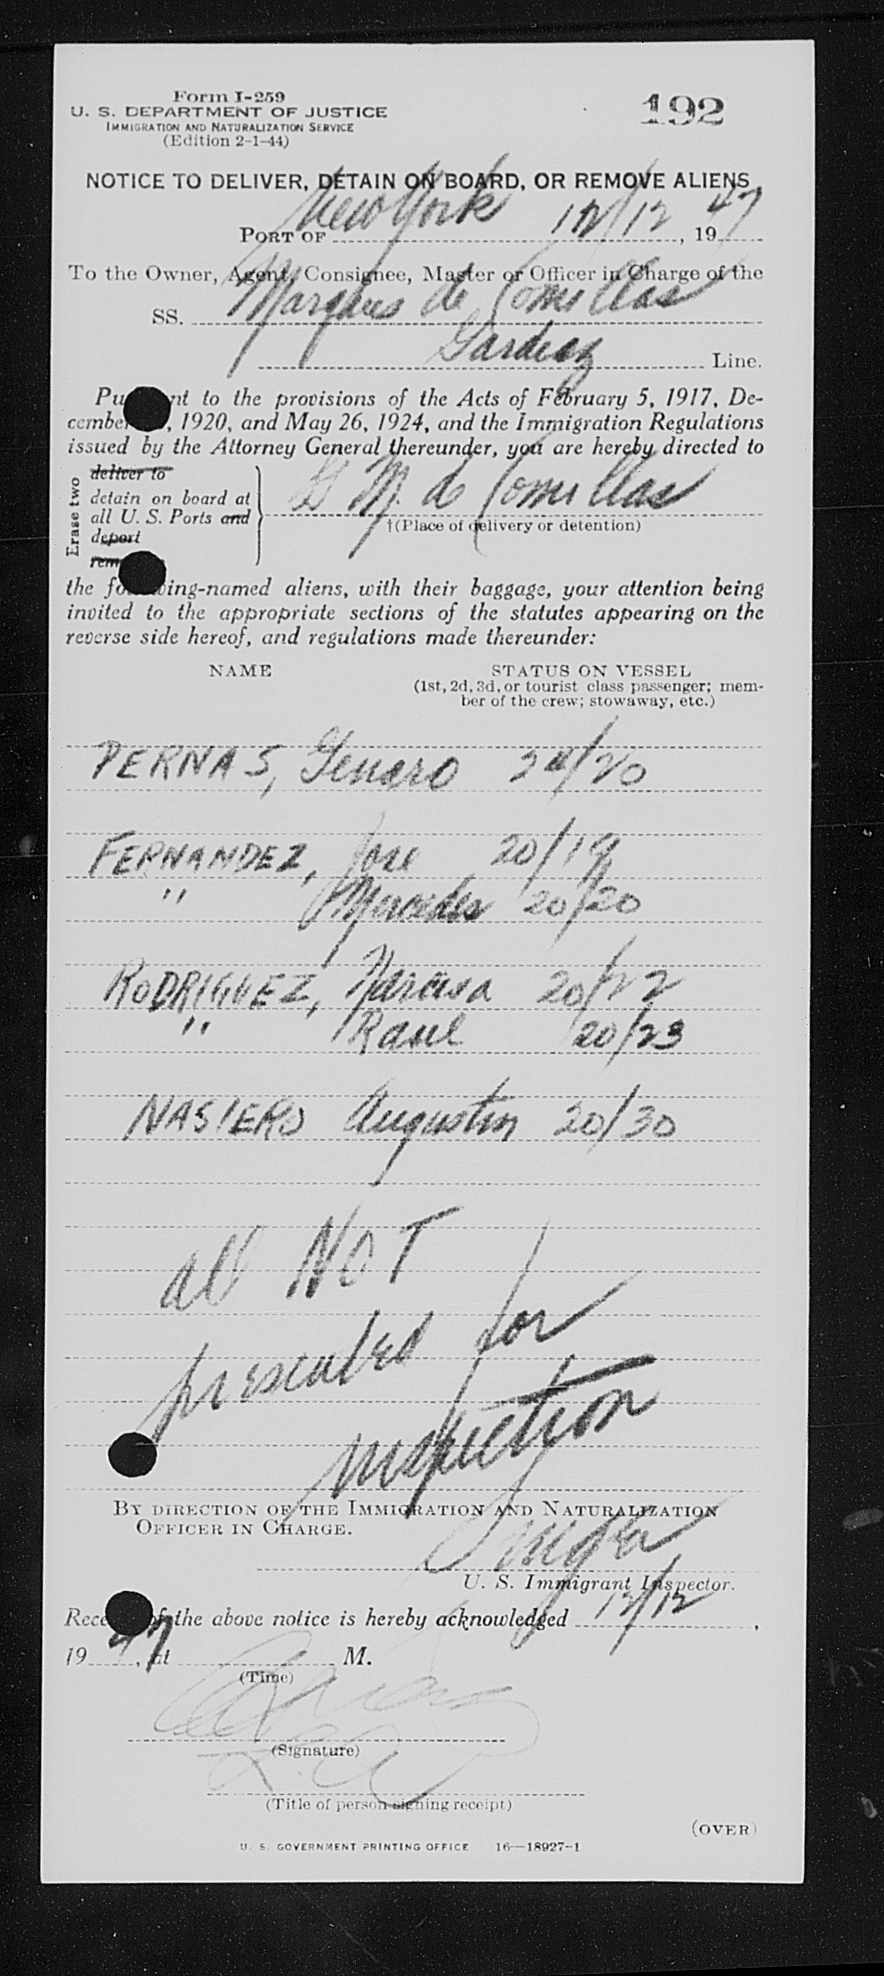 Form I-259
U. S. DEPARTMENT OF JUSTICE
IMMIGRATION AND NATURALIZATION SERVICE
(Edition 2-1-44)
192
NOTICE TO DELIVER, DETAIN ON BOARD, OR REMOVE ALIENS
PORT OF New York 12/12, 1947
To the Owner, Agent, Consignee, Master or Officer in Charge of the
SS. Marques de Comillas
Garcia Line.
Pu nt to the provisions of the Acts of February 5, 1917, De-
cember , 1920, and May 26, 1924, and the Immigration Regulations
issued by the Attorney General thereunder, you are hereby directed to
Erase two
deliver to
detain on board at
all U. S. Ports and
deport
rem
M. de Comillas
†(Place of delivery or detention)
the fo wing-named aliens, with their baggage, your attention being
invited to the appropriate sections of the statutes appearing on the
reverse side hereof, and regulations made thereunder:
NAME STATUS ON VESSEL
(1st, 2d, 3d, or tourist class passenger; mem-
ber of the crew; stowaway, etc.)
PERNAS, Genaro 24/20
FERNANDEZ, Jose 20/19
" Mercedes 20/20
RODRIGUEZ, Narcisa 20/22
" Raul 20/23
NASIERO Augustin 20/30
all NOT
presented for
inspection
BY DIRECTION OF THE IMMIGRATION AND NATURALIZATION
OFFICER IN CHARGE.
U. S. Immigrant Inspector.
Rece of the above notice is hereby acknowledged 12/12,
1947, at M.
(Time)
(Signature)
(Title of person signing receipt)
(OVER)
U. S. GOVERNMENT PRINTING OFFICE 16—18927-1